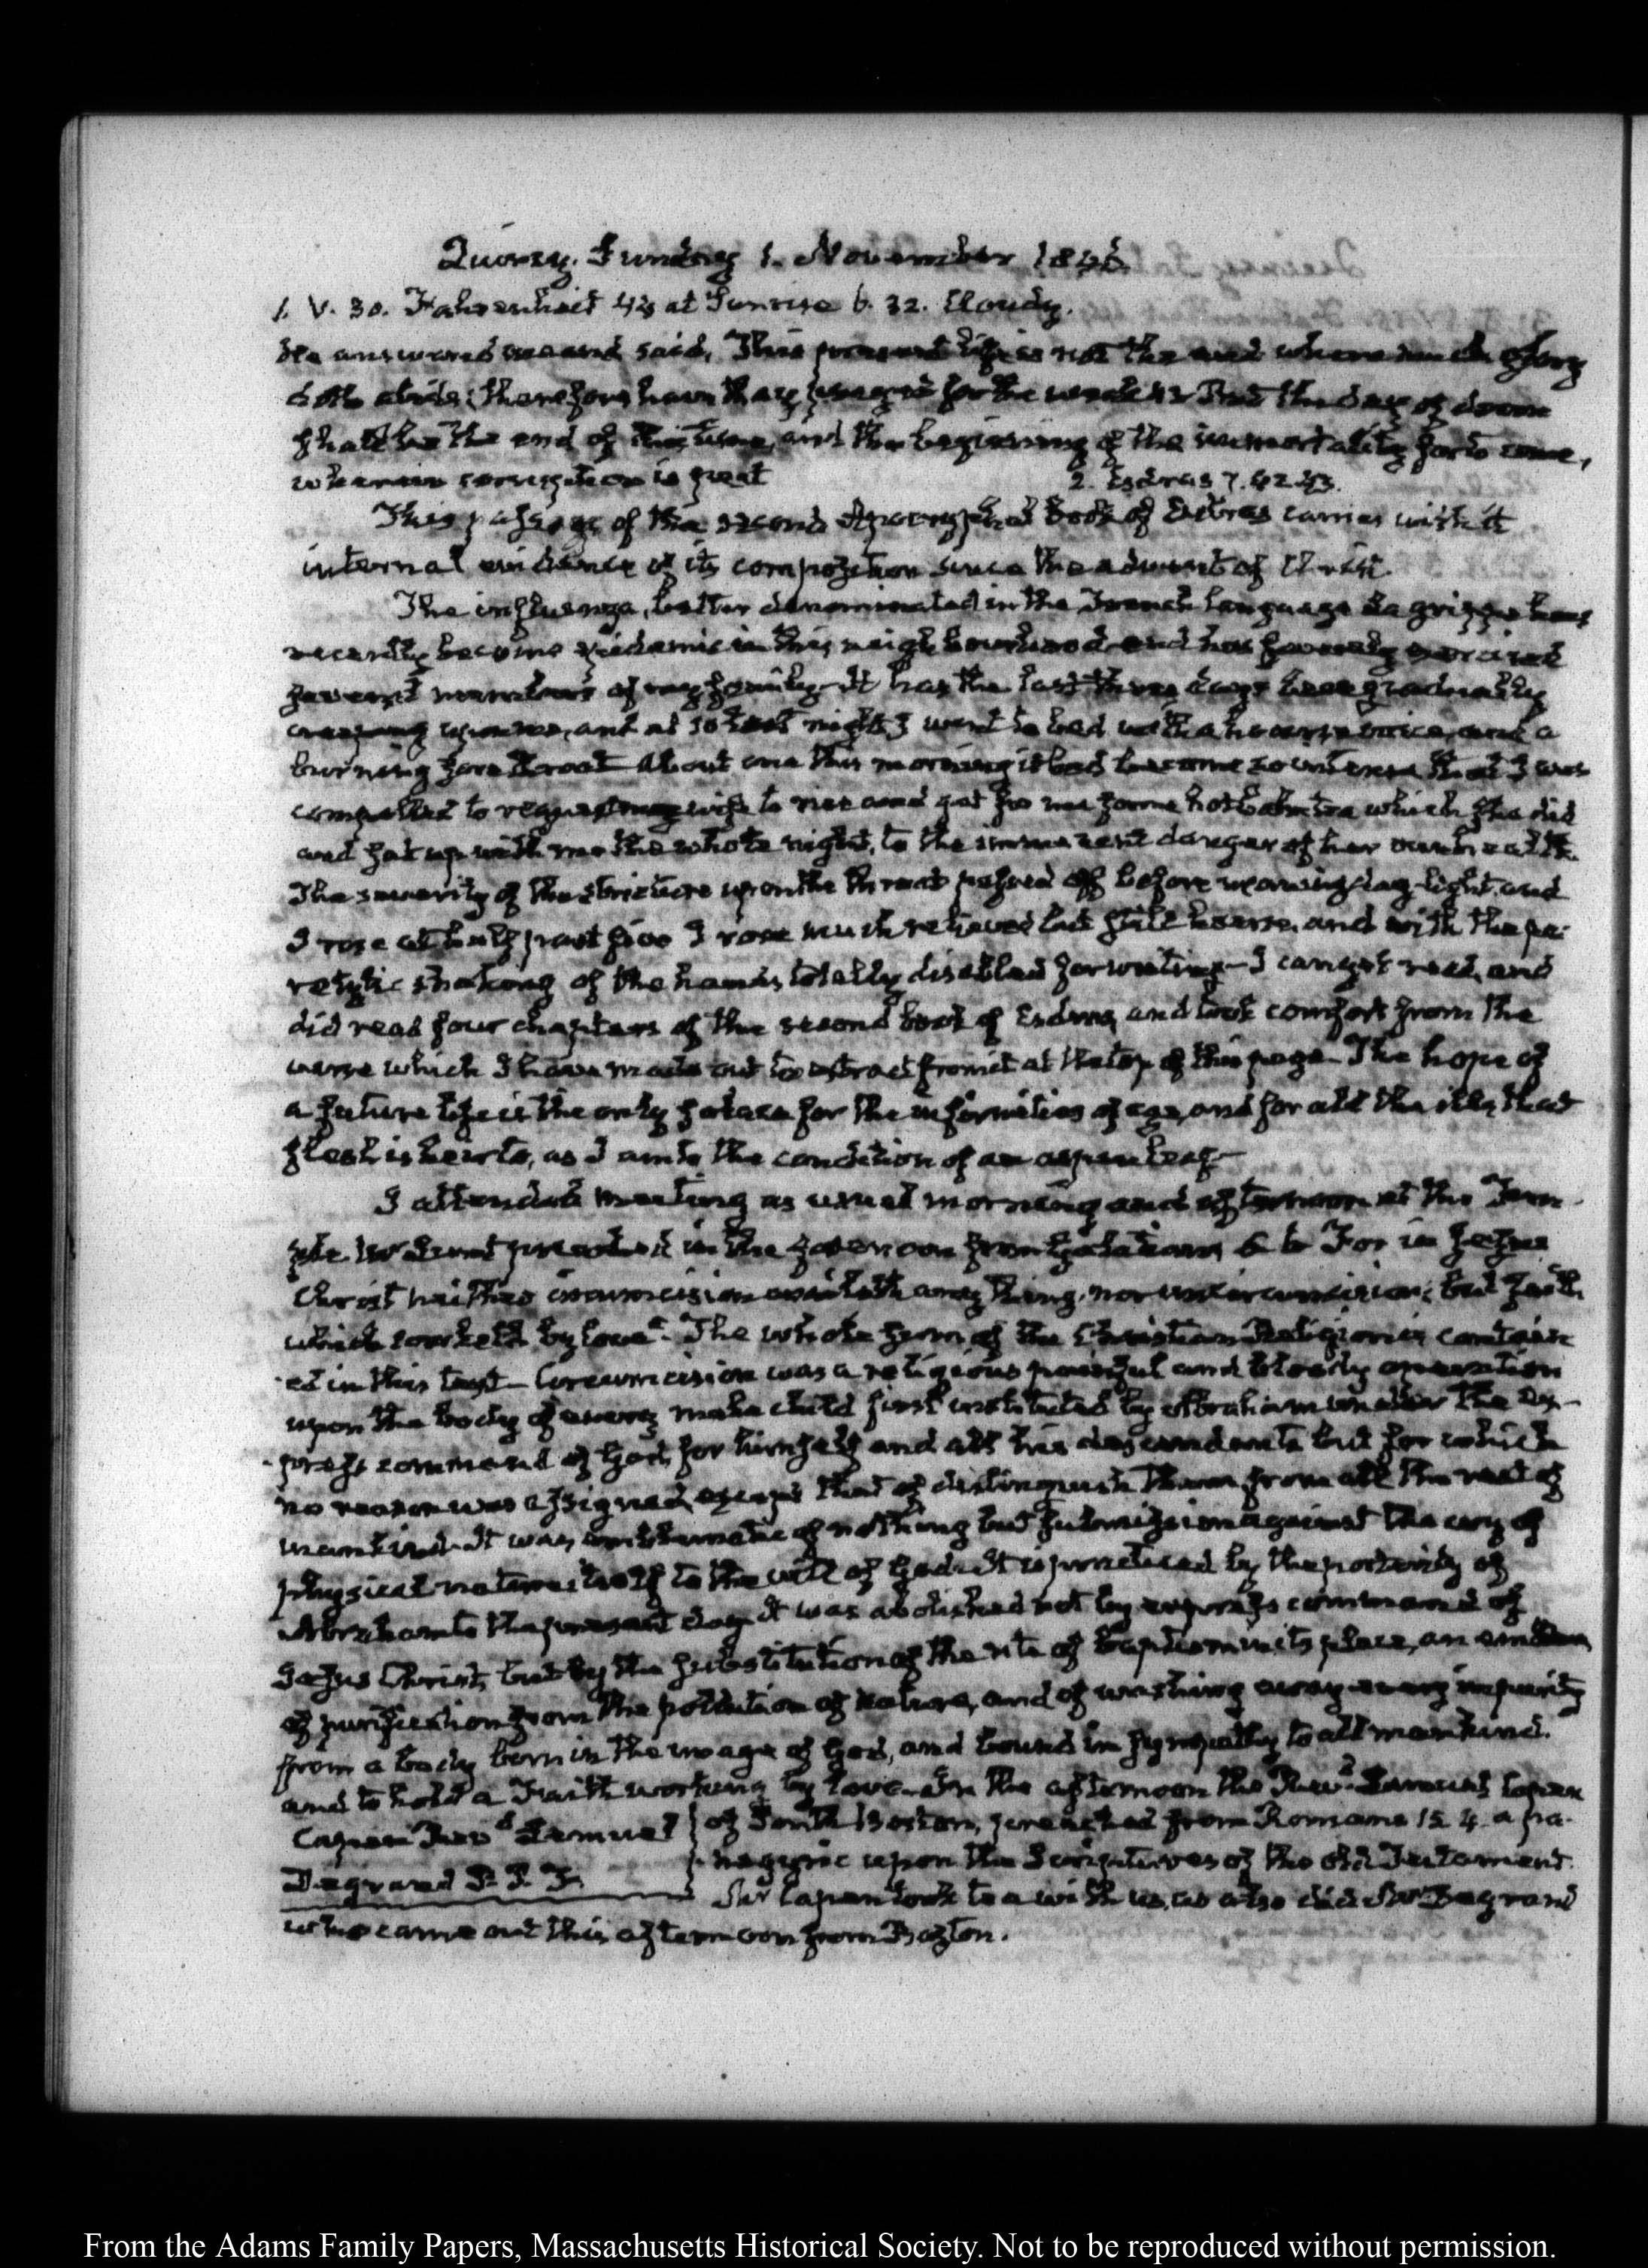 Quincy. Sunday 1. November 1846.
1. V. 30. Fahrenheit 43 at Sunrise 6. 32. Cloudy.
He answered me and said, This present life is not the end where much glory
doth abide; therefore have they prayed for the weak 43 But the day of doom
shall be the end of this time, and the beginning of the immortality for to come,
wherein corruption is past 2. Esdras 7. 42 43.
This passage of the second Apocryphal book of Esdras carries with it
internal evidence of its composition since the advent of Christ.
The influenza, better denominated in the French language la grippe has
recently become epidemic in this neighbourhood and has severely
several members of my family. It has the last three days been gradually
creeping upon me, and at 10 last night I went to bed with a hoarse voice, and a
burning sore throat. About one this morning it had become so intense that I was
compelled to request my wife to rise and get for me some hot balm tea which she did
and sat up with me the whole night, to the imminent danger of her own health.
The severity of the stricture upon the throat passed off before morning day-light, and
I rose at half past five I rose much relieved but still hoarse, and with the pa-
ralytic shaking of the hands totally disabled for writing— I can yet read, and
did read four chapters of the second book of Esdras, and took comfort from the
verse which I have made out to extract from it at the top of this page. The hope of
a future life is the only solace for the infirmities of age, and for all the ills that
flesh is heir to, as I am to the condition of an aspen leaf—
I attended meeting as usual morning and afternoon at the Tem-
ple. Mr Lunt preached in the forenoon from Galatians 5. 6 For in Jesus
Christ neither circumcision availeth any thing, nor uncircumcision; but faith
which worketh by love". The whole of the Christian Religion is contain-
ed in this text— Circumcision was a religious painful and bloody operation
upon the body of every male child first instituted by Abraham under the ex-
press command of God, for himself and all his descendants but for which
no reason was assigned, except that of distinguish them from all the rest of
mankind. It was emblematic of nothing but submission against the cry of
physical nature itself to the will of God. It is practiced by the posterity of
Abraham to the present day. It was abolished not by express command of
Jesus Christ, but by the substitution of the rite of Baptism in its place, an emblem
of purification from the pollution of nature, and of washing away every impurity
from a body born in the image of God, and bound in sympathy to all mankind.
and to hold a Faith working by love. In the afternoon the Revd. Lemuel Capen
Capen Revd Lemuel } of South Boston, preached from Romans 15. 4. a pa-
Degrand P. P. F. } negyric upon the Scriptures of the old Testament.
Mr Capen took tea with us, as also did Mr Degrand
who came out this afternoon from Boston.
From the Adams Family Papers, Massachusetts Historical Society. Not to be reproduced without permission.